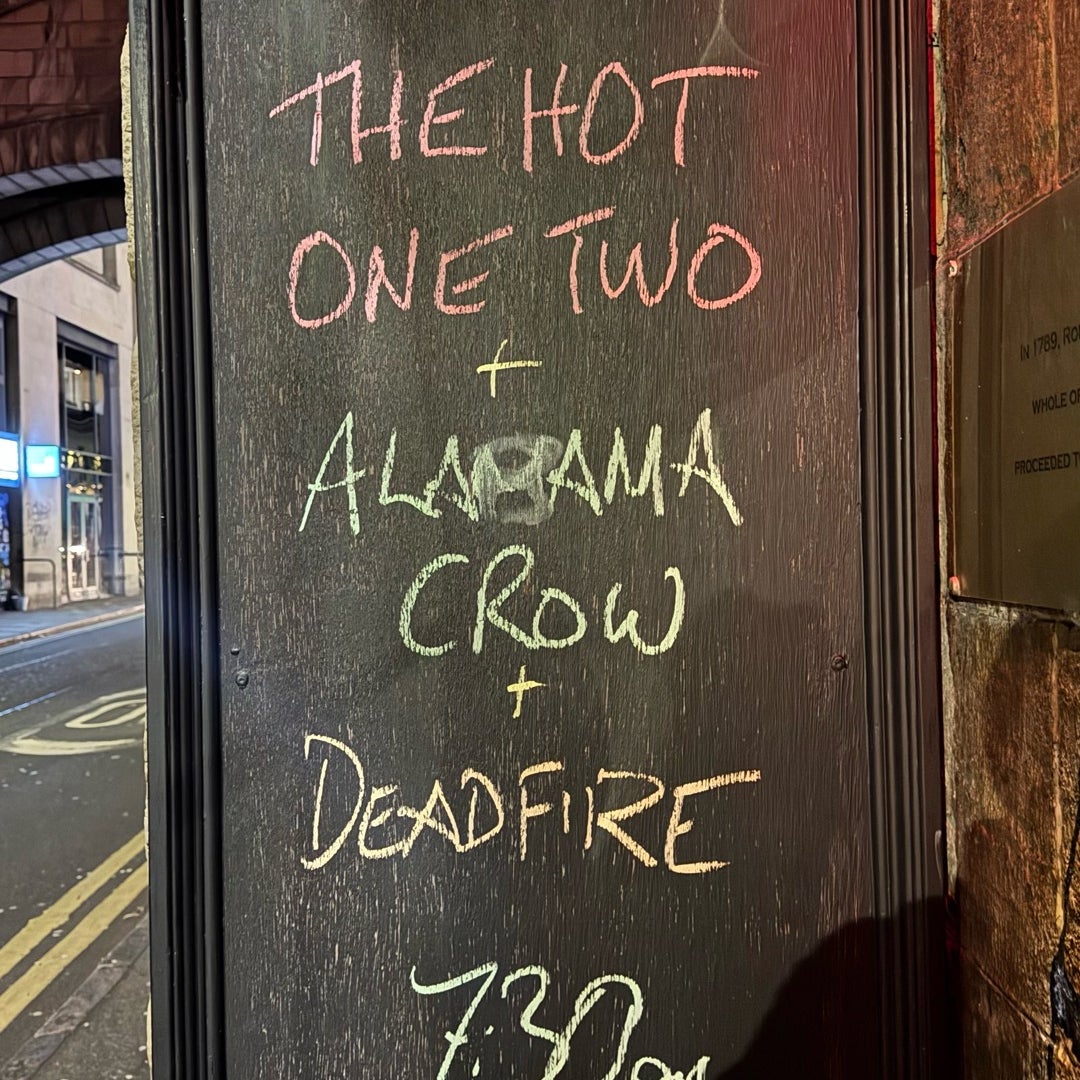 THE HOT
ONE TWO
+
ALABAMA
CROW
+
DEADFIRE
7.30pm
IN 1789,
WHOLE
PROCEEDED